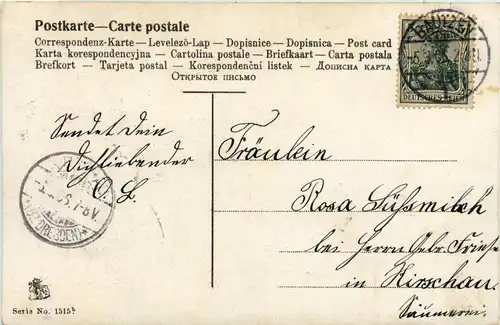 Postkarte — Carte postale
Correspondenz-Karte — Levelező-Lap — Dopisnice — Dopisnica — Post card
Karta korespondencyjna — Cartolina postale — Briefkaart — Carta postala
Brefkort — Tarjeta postal — Korespondenční listek — Дописна карта
Открытое письмо
BAUTZEN
DEUTSCHES REICH
Sendet Dein
Dichliebender
O. L.
7-8V.
(BZ. DRESDEN)
Fräulein
Rosa Süssmilch
bei Herrn Gebr. Friese
in Kirschau.
Säumerei.
Serie No. 1515